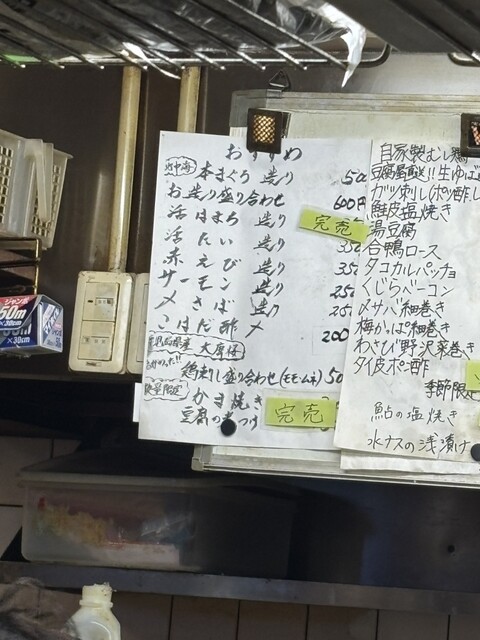 おすすめ
地中海 本まぐろ 造り 50
お造り盛り合わせ 600円
活はまち 造り 完売
活たい 造り 350
赤えび 造り 350
サーモン 造り 250
〆さば 造り 250
こはだ酢〆 200
大摩桜
鶏刺し盛り合わせ(モモ・ムネ) 50
かま焼き 完売
豆腐の煮つけ
自家製むし鶏
豆腐屋直送!!生ゆば
ガツ刺し(ポン酢し
鮭皮塩焼き
湯豆腐
合鴨ロース
タコカルパッチョ
くじらベーコン
〆サバ細巻き
梅かっぱ細巻き
わさび野沢菜巻き
タイ皮ポン酢
季節限定
鮎の塩焼き
水ナスの浅漬け
ジャンボ
50m
×30cm
×30cm